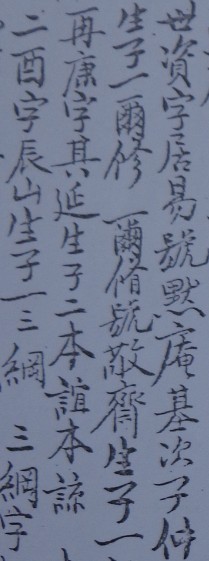 世資字居易號默庵基次子仲
生子一爾修 爾脩號敬齋生子一
再康字其延生子二本誼本諒
二酉字辰山生子一三綱 三綱字